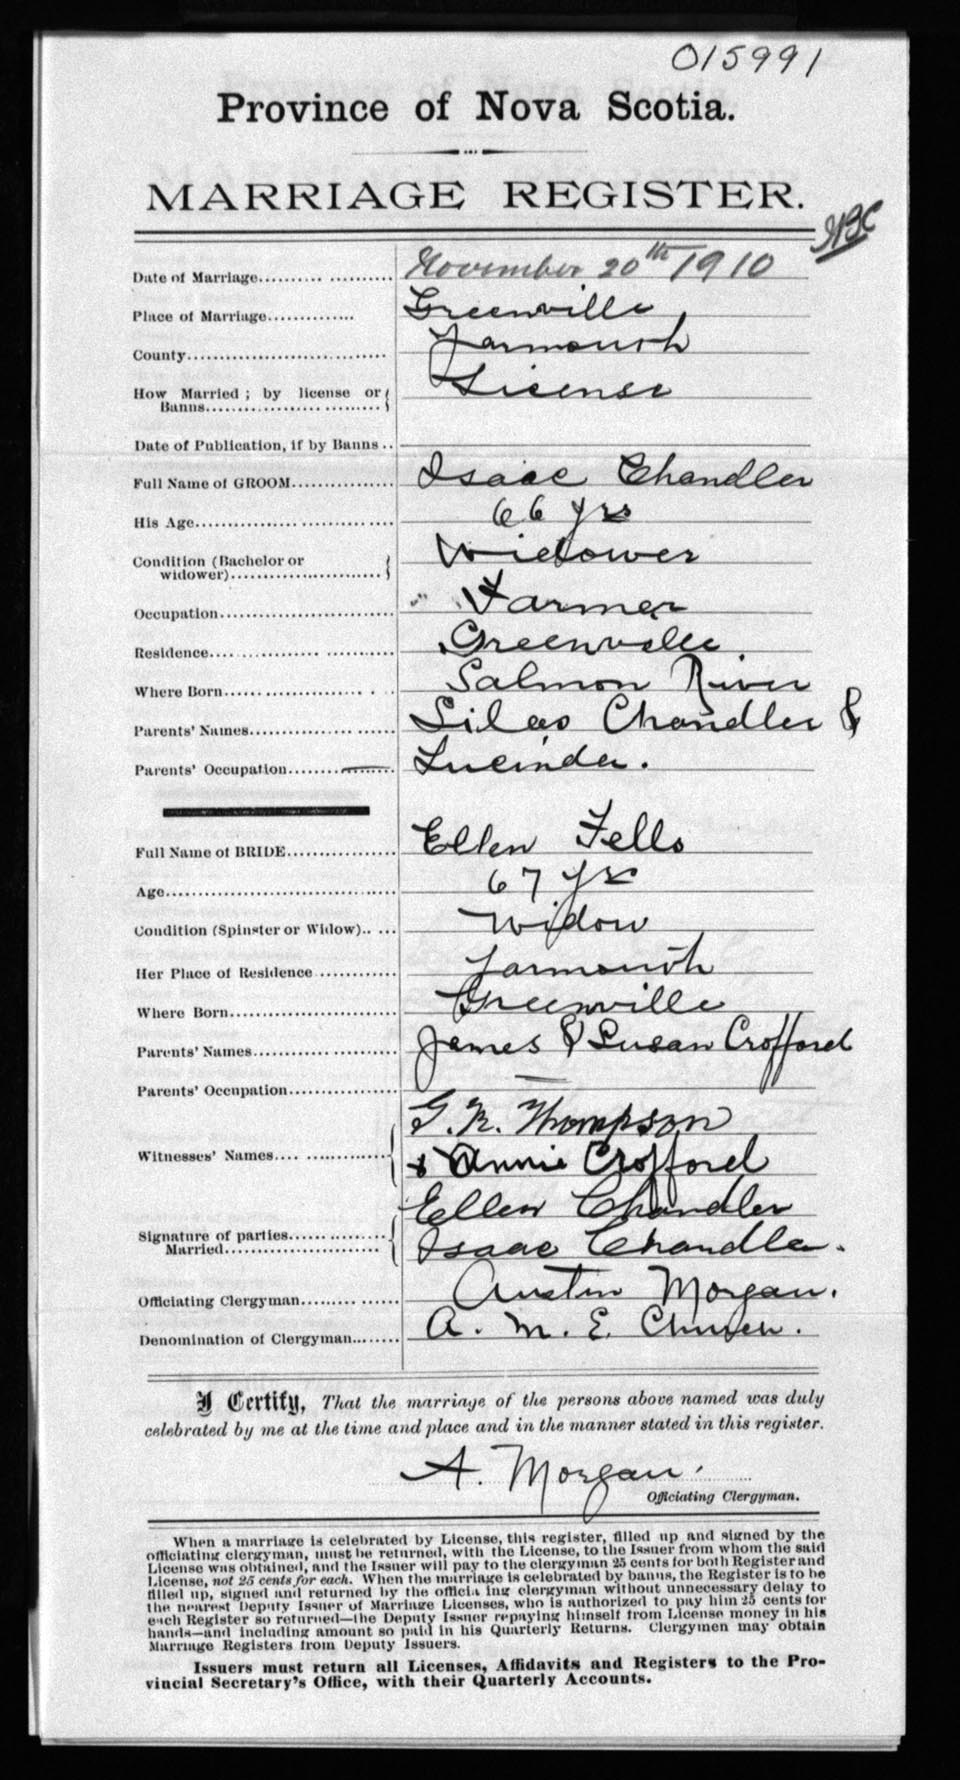 015991
Province of Nova Scotia.
MARRIAGE REGISTER.
Date of Marriage.......... November 20th 1910
Place of Marriage.......... Greenville
County.......... Yarmouth
How Married; by license or
Banns.......... License
Date of Publication, if by Banns..
Full Name of GROOM.......... Isaac Chandler
His Age.......... 66 yrs
Condition (Bachelor or
widower).......... Widower
Occupation.......... Farmer
Residence.......... Greenville
Where Born.......... Salmon River
Parents' Names.......... Silas Chandler &
Parents' Occupation.......... Lucinda.
Full Name of BRIDE.......... Ellen Fells
Age.......... 67 yrs
Condition (Spinster or Widow)..... Widow
Her Place of Residence.......... Yarmouth
Where Born.......... Greenville
Parents' Names.......... James & Susan Crofford
Parents' Occupation.......... —
G. R. Thompson
Witnesses' Names.......... & Annie Crofford
Ellen Chandler
Signature of parties
Married.......... Isaac Chandler.
Officiating Clergyman.......... Austin Morgan.
Denomination of Clergyman....... A. M. E. Church.
I Certify, That the marriage of the persons above named was duly
celebrated by me at the time and place and in the manner stated in this register.
A. Morgan.
Officiating Clergyman.
When a marriage is celebrated by License, this register, filled up and signed by the
officiating clergyman, must be returned, with the License, to the Issuer from whom the said
License was obtained, and the Issuer will pay to the clergyman 25 cents for both Register and
License, not 25 cents for each. When the marriage is celebrated by banns, the Register is to be
filled up, signed and returned by the officia ing clergyman without unnecessary delay to
the nearest Deputy Issuer of Marriage Licenses, who is authorized to pay him 25 cents for
each Register so returned—the Deputy Issuer repaying himself from License money in his
hands—and including amount so paid in his Quarterly Returns. Clergymen may obtain
Marriage Registers from Deputy Issuers.
Issuers must return all Licenses, Affidavits and Registers to the Pro-
vincial Secretary's Office, with their Quarterly Accounts.